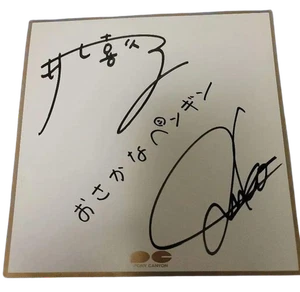 井上喜久子
おさかなペンギン
PONY CANYON